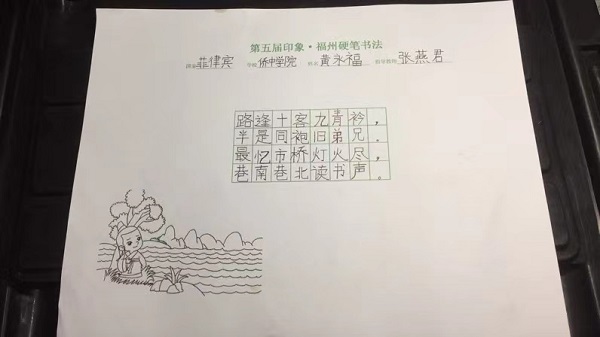 第五届印象·福州硬笔书法
国家菲律宾 学校侨中学院 姓名黄永福 指导教师张燕君
路逢十客九青衿，
半是同袍旧弟兄.
最忆市桥灯火尽，
巷南巷北读书声。